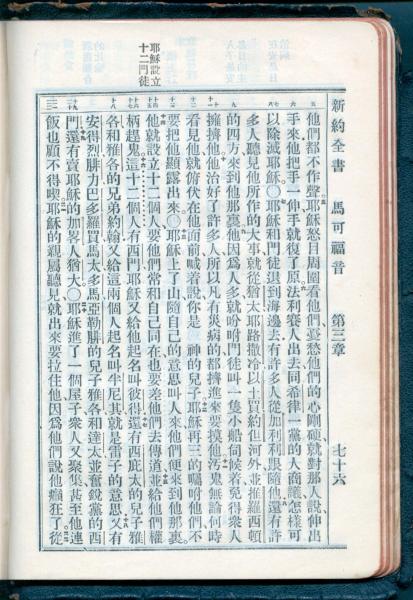 新約全書 馬可福音 第三章 七十六
他們都不作聲耶穌怒目周圍看他們憂愁他們的心剛硬就對那人說伸出
手來他把手一伸手就復了原法利賽人出去同希律一黨的人商議怎樣可
以除滅耶穌〇耶穌和門徒退到海邊去有許多人從加利利跟隨他還有許
多人聽見他所作的大事就從猶太耶路撒冷以土買約但河外並推羅西頓
的四方來到他那裏他因爲人多就吩咐門徒叫一隻小船伺候着免得衆人
擁擠他他治好了許多人所以凡有災病的都擠進來要摸他汚鬼無論何時
看見他就俯伏在他面前喊着說你是 神的兒子耶穌再三的囑咐他們不
要把他顯露出來〇耶穌上了山隨自己的意思叫人來他們便來到他那裏
他就設立十二個人要他們常和自己同在也要差他們去傳道並給他們權
柄趕鬼這十二個人有西門耶穌又給他起名叫彼得還有西庇太的兒子雅
各和雅各的兄弟約翰又給這兩個人起名叫半尼其就是雷子的意思又有
安得烈腓力巴多羅買馬太多馬亞勒腓的兒子雅各和達太並奮銳黨的西
門還有賣耶穌的加畧人猶大〇耶穌進了一個屋子衆人又聚集甚至他連
飯也顧不得喫耶穌的親屬聽見就出來要拉住他因爲他們說他癲狂了從
耶穌設立
十二門徒